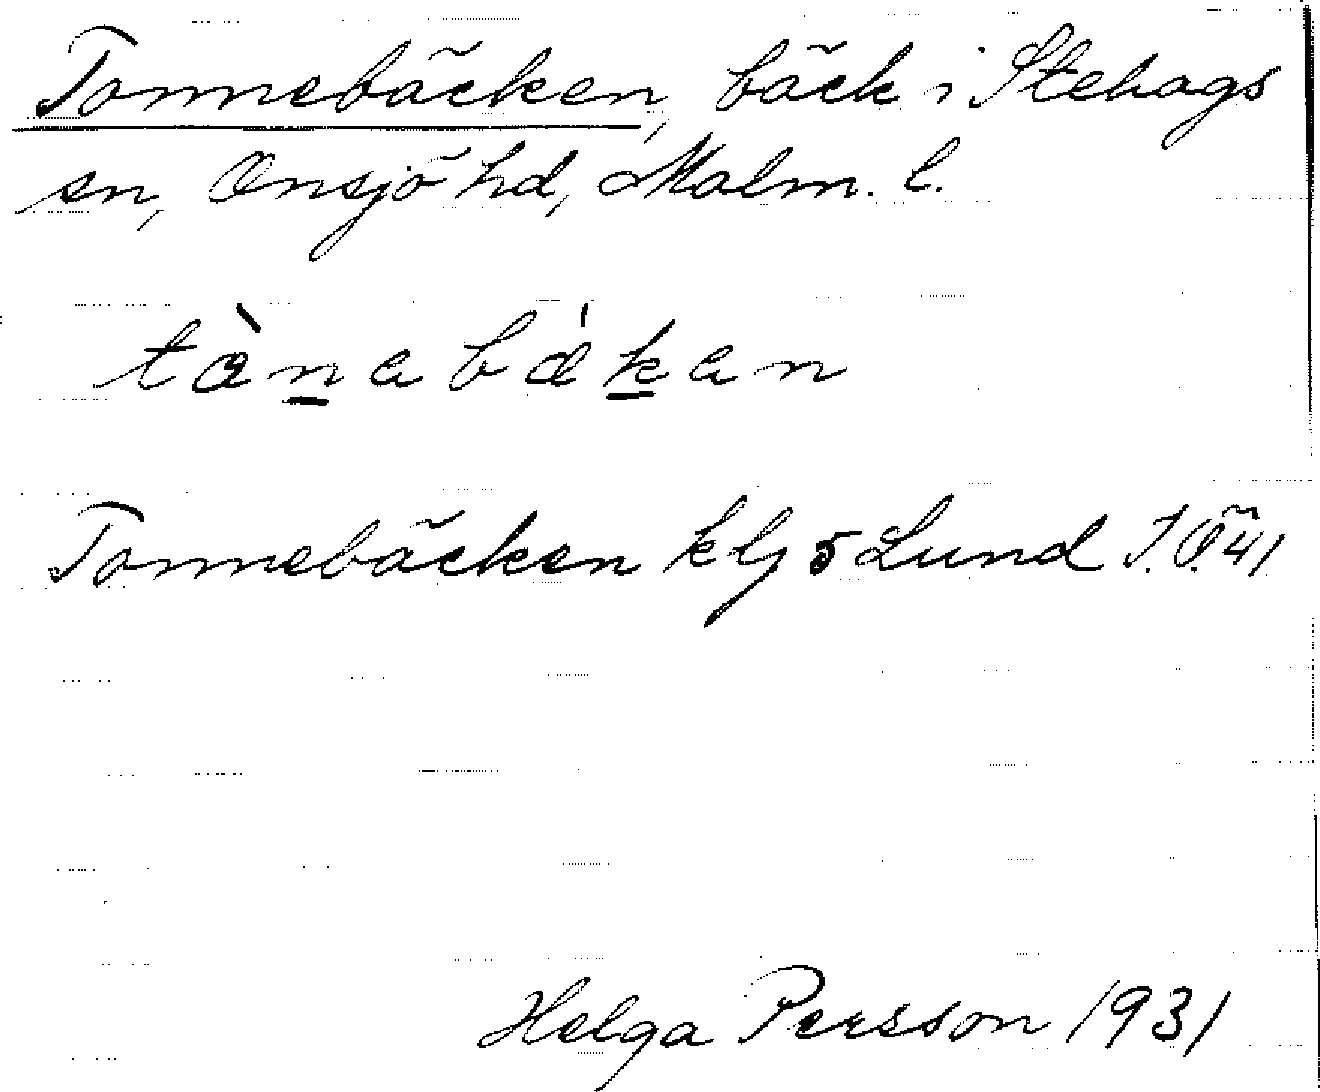 Tonnebäcken, bäck i Stehags
sn, Onsjö hd, Malm. l.
tònabákan
Tonnebäcken klj 5 Lund I.Ö.41
Helga Persson 1931